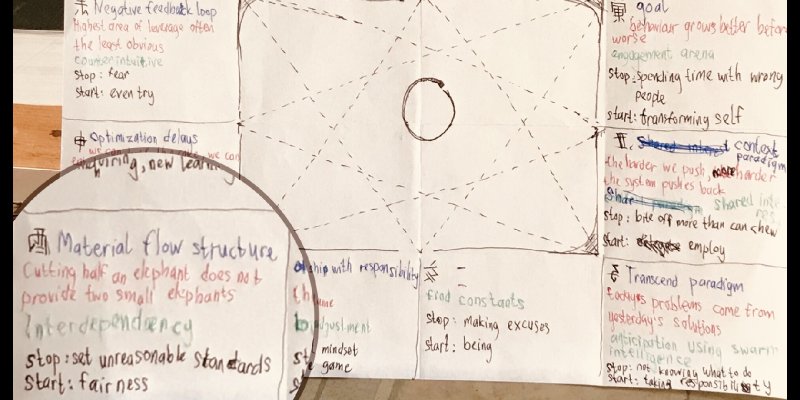 Negative feedback loop
Highest area of leverage often
the least obvious
counterintuitive
stop: fear
start: even try
Optimization delays
we can
inquiring, new learning
Material flow structure
Cutting half an elephant does not
provide two small elephants
Interdependency
stop: set unreasonable standards
start: fairness
ship with responsibility
adjustment
mindset
game
-
-
find constants
stop: making excuses
start: being
goal
behaviour grows better before
worse
engagement arena
stop: spending time with wrong
people
start: transforming self
Shared interest context
paradigm
the harder we push, harder
the system pushes back
shared inte
res
stop: bite off more than can chew
start: employ
Transcend paradigm
todays problems come from
yesterday's solutions
anticipation using swarm
intelligence
stop: not knowing what to do
start: taking responsibility